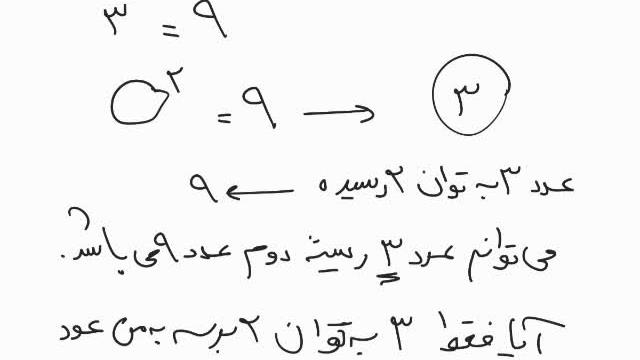 ۳ = ۹
○² = ۹ → ۳
عدد ۳ به توان ۲ رسیده ← ۹
می‌توانم عدد ۳ ریشه دوم عدد ۹ می باشد.
آیا فقط ۳ به توان ۲ برسه به من عود